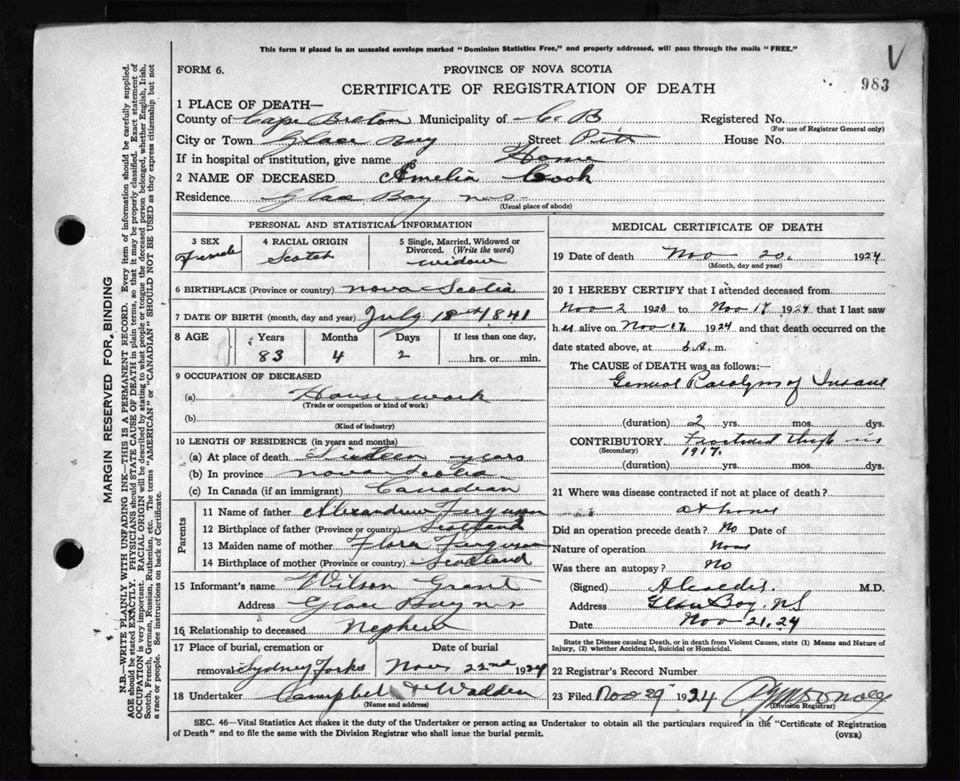 This form if placed in an unsealed envelope marked "Dominion Statistics Free," and properly addressed, will pass through the mails "FREE."
V
983
FORM 6.
PROVINCE OF NOVA SCOTIA
CERTIFICATE OF REGISTRATION OF DEATH
1 PLACE OF DEATH—
County of Cape Breton Municipality of C. B Registered No.
(For use of Registrar General only)
City or Town Glace Bay Street Pitt House No.
If in hospital or institution, give name Home
2 NAME OF DECEASED Amelia Cook
Residence Glace Bay N S
(Usual place of abode)
PERSONAL AND STATISTICAL INFORMATION
3 SEX Female
4 RACIAL ORIGIN Scotch
5 Single, Married, Widowed or Divorced. (Write the word) widow
6 BIRTHPLACE (Province or country) Nova Scotia
7 DATE OF BIRTH (month, day and year) July 18th 1841
8 AGE Years Months Days If less than one day,
83 4 2 hrs. or min.
9 OCCUPATION OF DECEASED
(a) House work
(Trade or occupation or kind of work)
(b)
(Kind of industry)
10 LENGTH OF RESIDENCE (in years and months)
(a) At place of death years
(b) In province Nova Scotia
(c) In Canada (if an immigrant) Canadian
Parents
11 Name of father Alexander Ferguson
12 Birthplace of father (Province or country) Scotland
13 Maiden name of mother Flora Ferguson
14 Birthplace of mother (Province or country) Scotland
15 Informant's name Wilson Grant
Address Glace Bay N S
16 Relationship to deceased Nephew
17 Place of burial, cremation or removal Sydney Forks Date of burial Nov 22nd 1924
18 Undertaker Campbell & Wadden
(Name and address)
MEDICAL CERTIFICATE OF DEATH
19 Date of death Nov 20, 1924
(Month, day and year)
20 I HEREBY CERTIFY that I attended deceased from
Nov 2 1923 to Nov 17 1924 that I last saw
her alive on Nov 17 1924 and that death occurred on
date stated above, at 6 A. m.
The CAUSE of DEATH was as follows:
General Paralysis of Insane
(duration) 2 yrs. mos. dys.
CONTRIBUTORY Fractured thigh in
(Secondary) 1917.
(duration) yrs. mos. dys.
21 Where was disease contracted if not at place of death?
at home
Did an operation precede death? No Date of
Nature of operation None
Was there an autopsy? No
(Signed) M.D.
Address Glace Bay. N S
Date Nov 21, 24
State the Disease causing Death, or in death from Violent Causes, state (1) Means and Nature of Injury, (2) whether Accidental, Suicidal or Homicidal.
22 Registrar's Record Number
23 Filed Nov 29 1924
(Division Registrar)
SEC. 46—Vital Statistics Act makes it the duty of the Undertaker or person acting as Undertaker to obtain all the particulars required in the "Certificate of Registration
of Death" and to file the same with the Division Registrar who shall issue the burial permit.
(OVER)
MARGIN RESERVED FOR BINDING
N.B.—WRITE PLAINLY WITH UNFADING INK—THIS IS A PERMANENT RECORD. Every item of information should be carefully supplied.
AGE should be stated EXACTLY. PHYSICIANS should STATE CAUSE OF DEATH in plain terms, so that it may be properly classified. Exact statement of
OCCUPATION is very important. RACIAL ORIGIN will be described by stating to what people or tongue the deceased person belonged, whether English, Irish,
Scotch, French, German, Russian, Ruthenian, etc. The terms "AMERICAN" or "CANADIAN" SHOULD NOT BE USED as they express citizenship but not
a race or people. See instructions on back of Certificate.